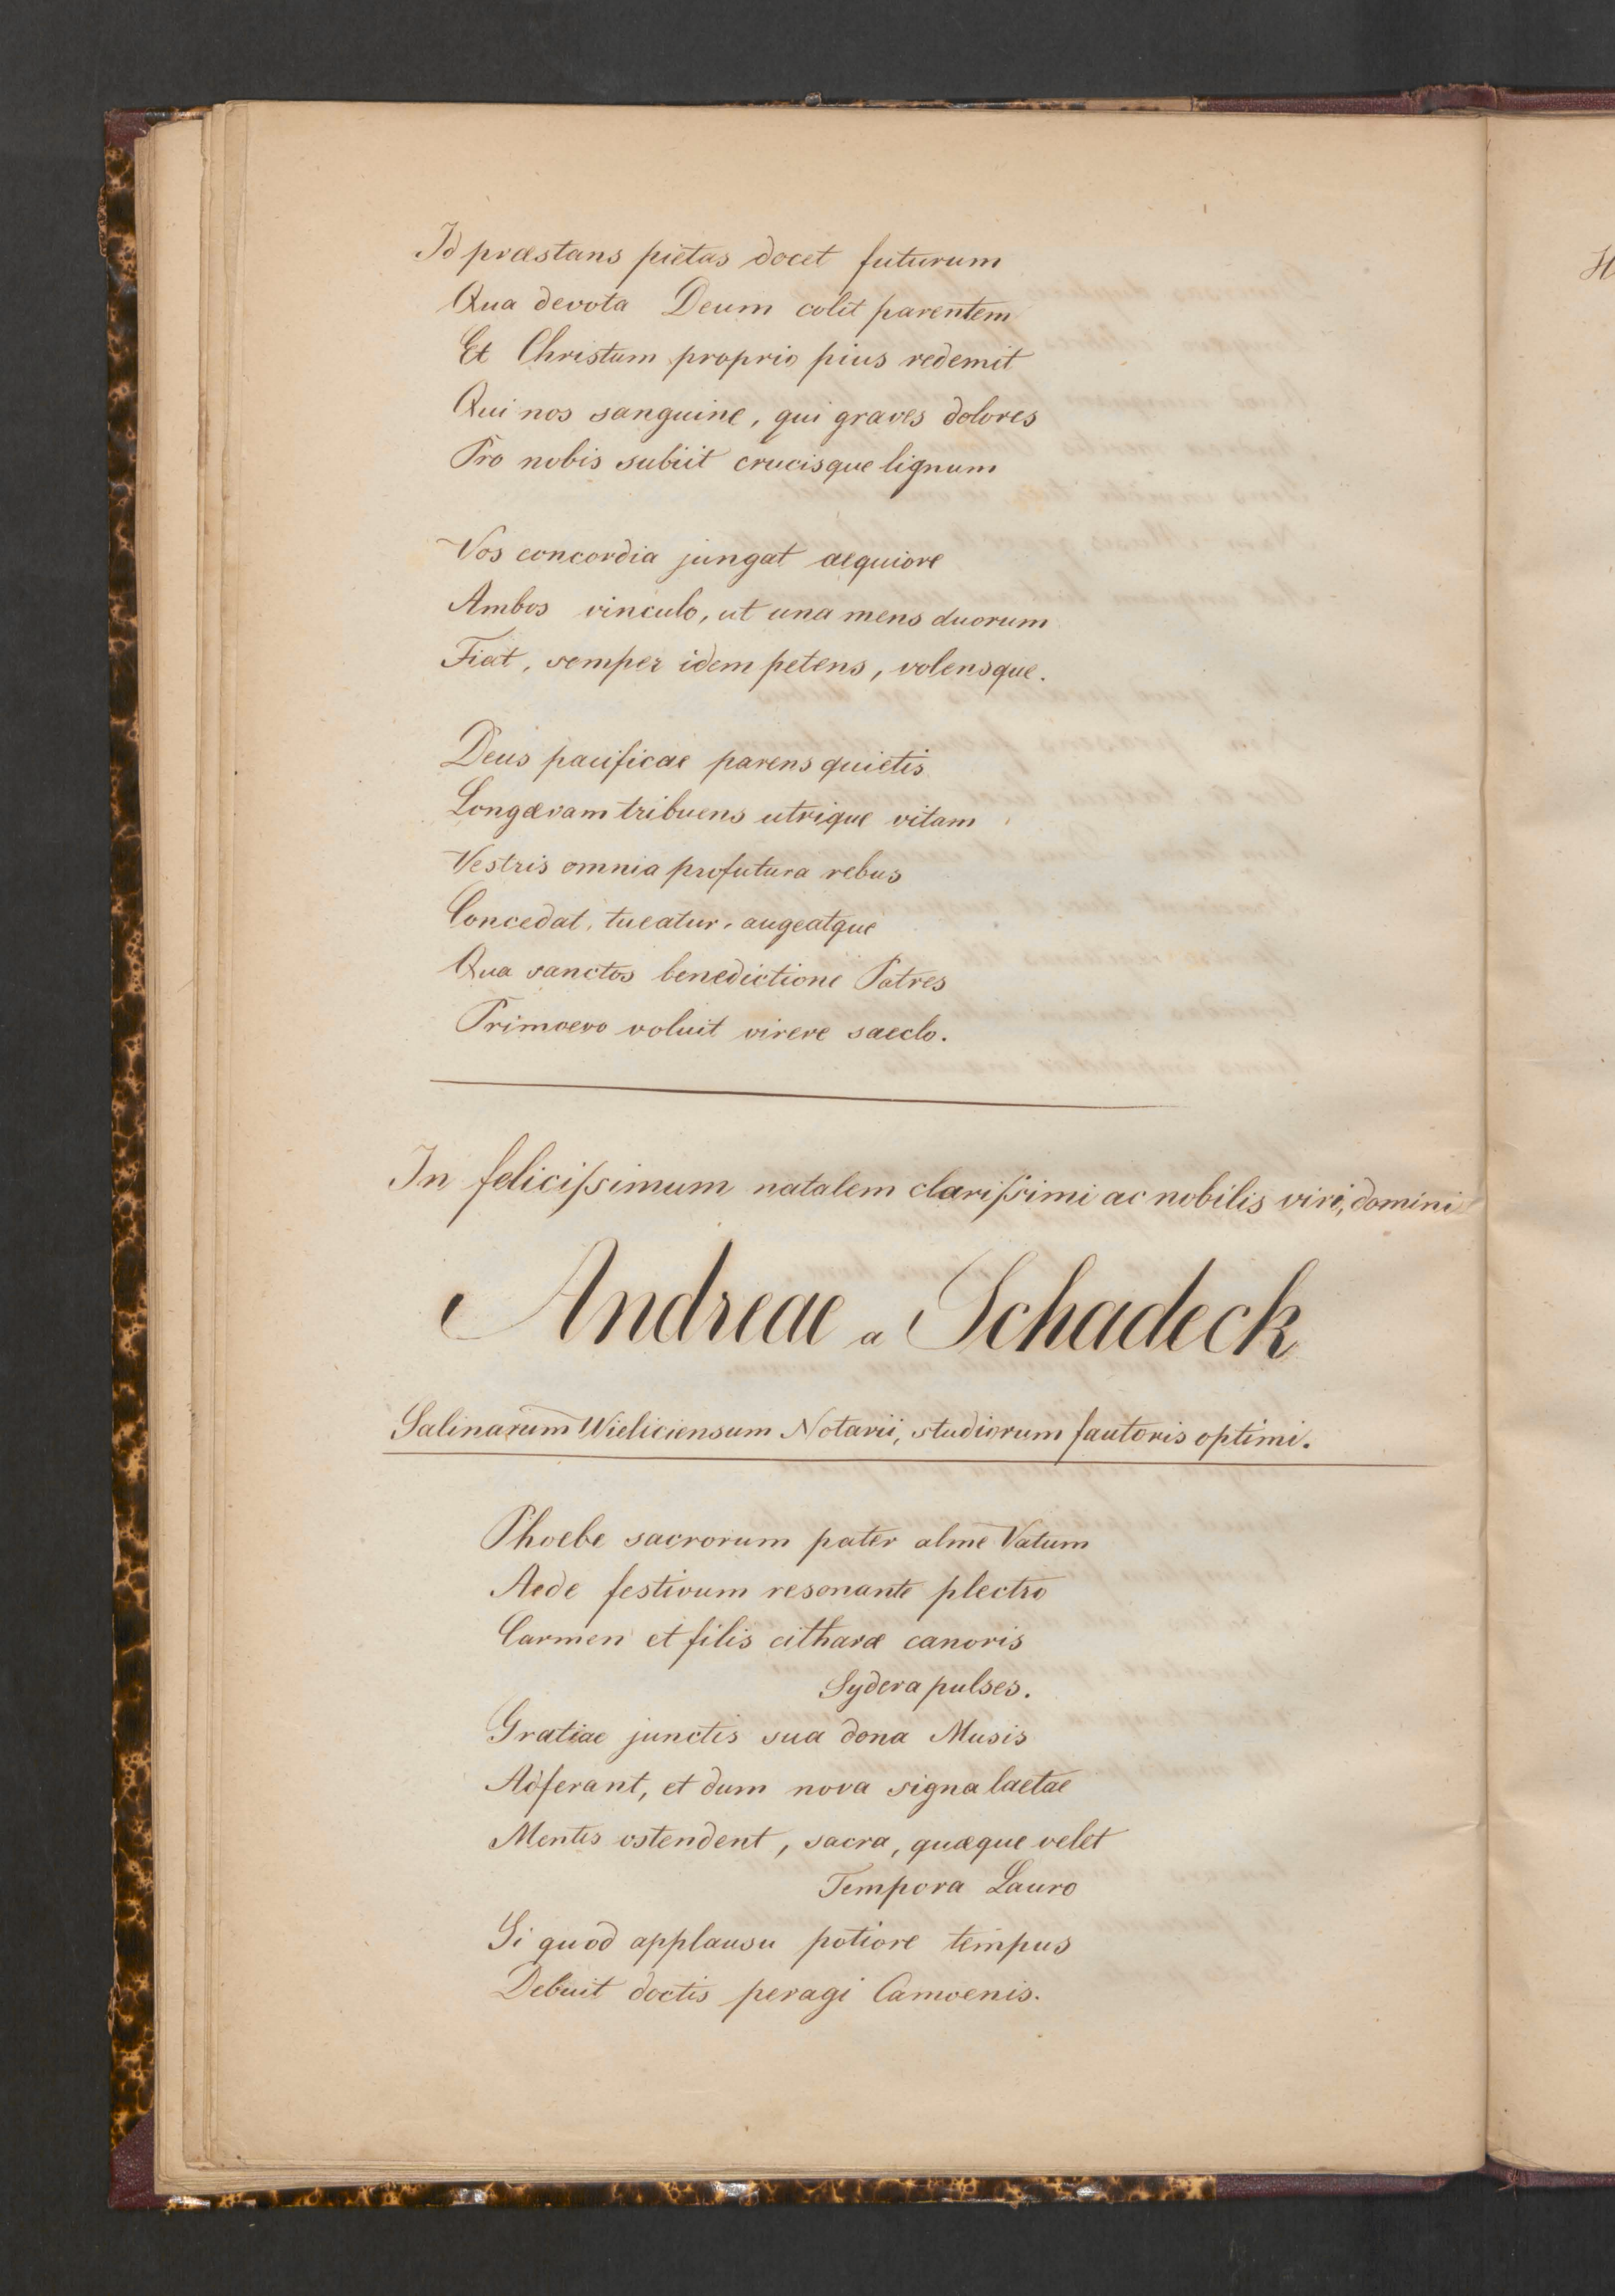 Id præstans pietas docet futurum
Qua devota Deum colit parentem
Et Christum proprio pius redemit
Qui nos sanguine, qui graves dolores
Pro nobis subiit crucisque lignum
Vos concordia jungat aequiore
Ambos vinculo, ut una mens duorum
Fiat, semper idem petens, volensque.
Deus pacificae parens quietis
Longævam tribuens utrique vitam
Vestris omnia profutura rebus
Concedat, tueatur, augeatque
Qua sanctos benedictione Patres
Primoevo voluit virere saeclo.
In feliciſsimum natalem clariſsimi ac nobilis viri, domini
Andreae a Schadeck
Salinarum Wieliciensum Notarii, studiorum fautoris optimi.
Phoebe sacrorum pater alme Vatum
Aede festivum resonante plectro
Carmen et filis citharæ canoris
Sydera pulses.
Gratiae junctis sua dona Musis
Adferant, et dum nova signa laetae
Mentis ostendent, sacra, quæque velet
Tempora Lauro
Si quod applausu potiore tempus
Debuit doctis peragi Camoenis.
H